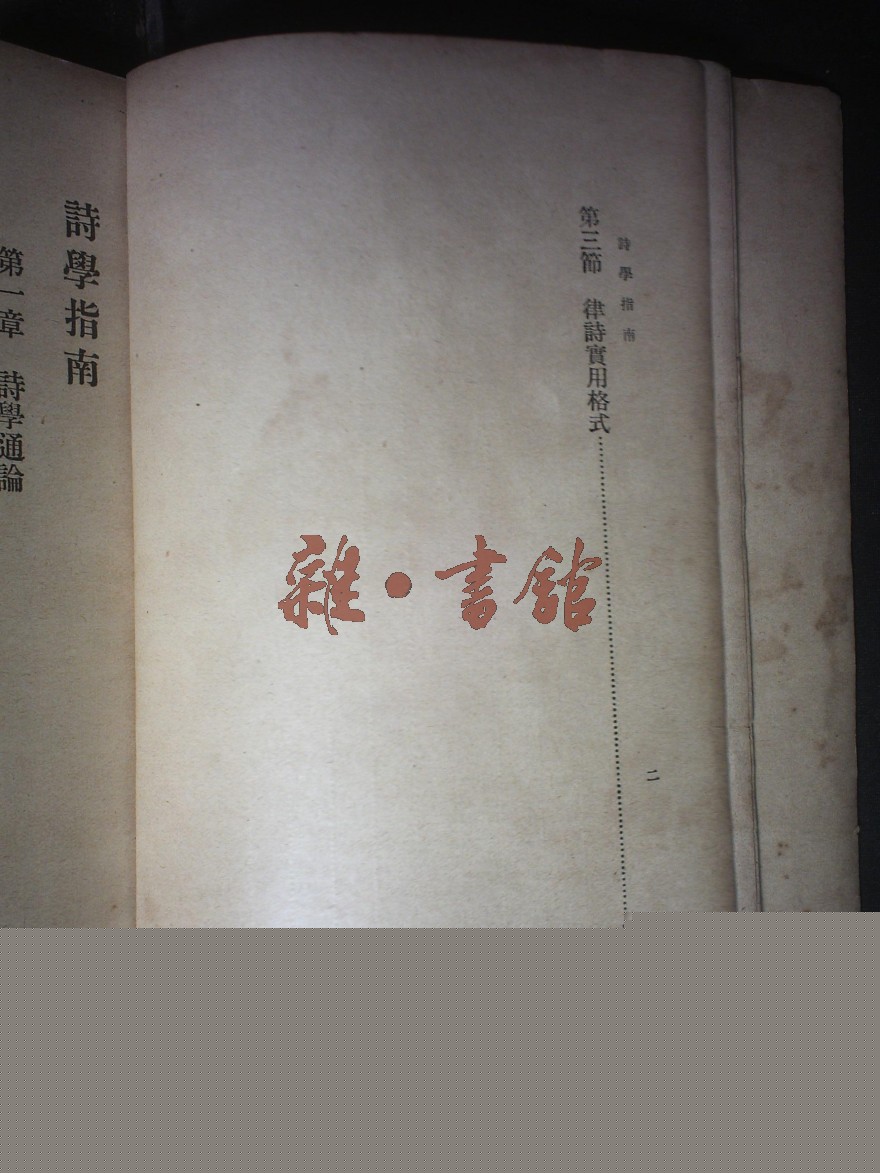 詩學指南
第三節　律詩實用格式
二
雜·書館
詩學指南
第一章　詩學通論